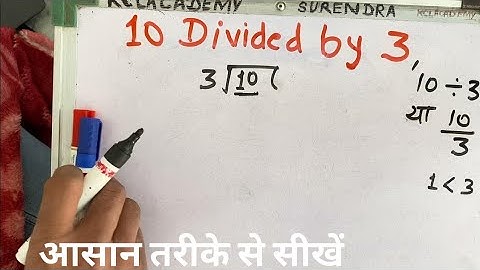 RCLACADEMY SURENDRA RCLACADEMY
10 Divided by 3,
3 10
10 ÷ 3
या 10/3
1 < 3
आसान तरीके से सीखें